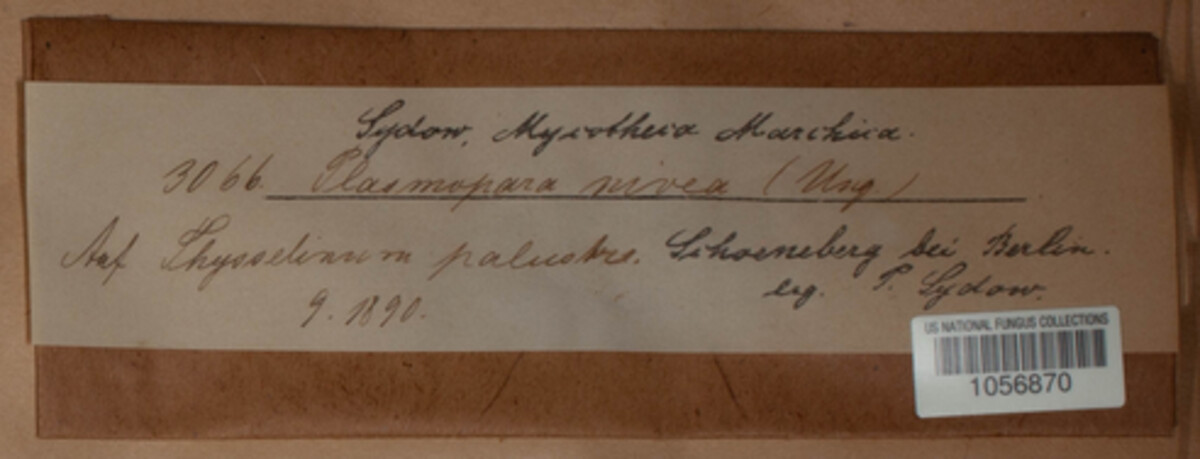 Sydow, Mycotheca Marchica.
3066. Plasmopara nivea (Ung)
Auf Thysselinum palustre. Schoeneberg bei Berlin.
9. 1890. leg. P. Sydow.
US NATIONAL FUNGUS COLLECTIONS
1056870